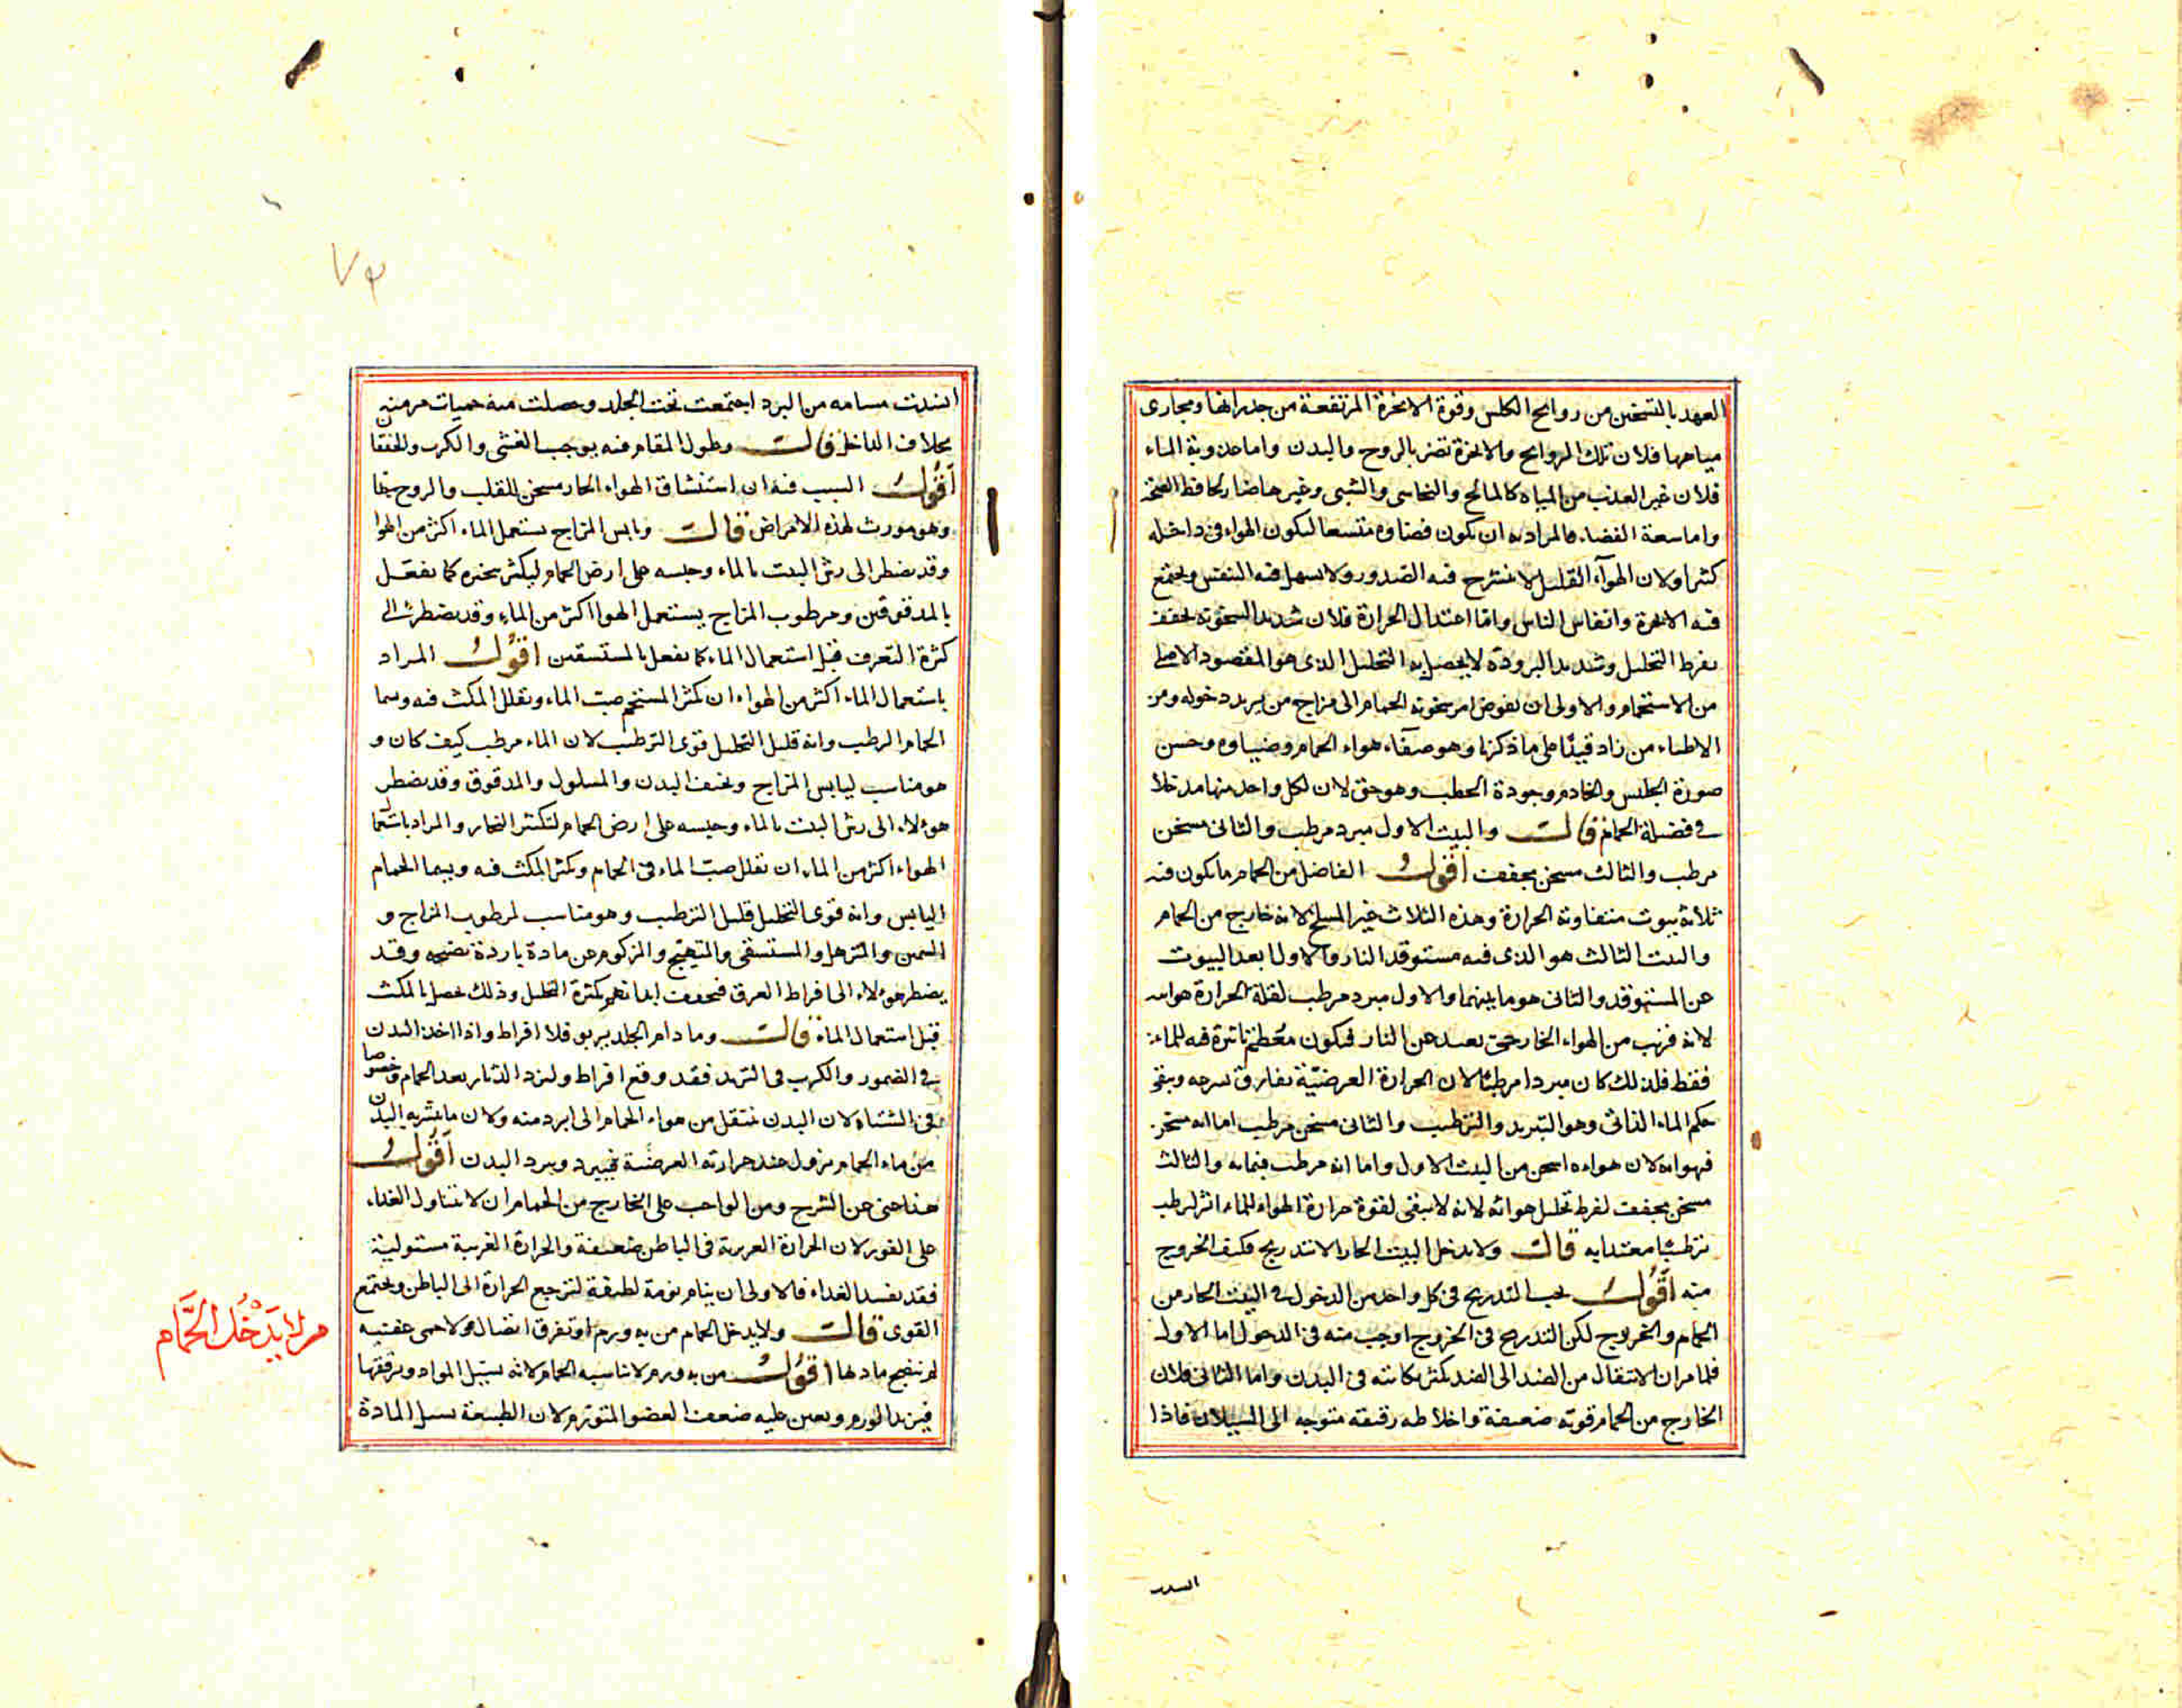 العهد بالتسخين من روايح الكلس وقوة الابخرة المرتفعة من جدرانها ومجارى
مياهها فلان تلك الروايح والابخرة تضر بالروح والبدن واما عذوبة الماء
فلان غير العذب من المياه كالمالح والنحاسى والشبى وغيرها ضار لحافظ الصحة
واما سعة الفضاء فالمراد به ان يكون فضاوه متسعا ليكون الهواء فى داخله
كثيرا ولان الهوآء القليل لا ينشرح فيه الصدور ولا يسهل فيه التنفس ويجتمع
فيه الابخرة وانفاس الناس واما اعتدال الحرارة فلان شديد السخونة يجفف
بفرط التحليل وشديد البرودة لا يحصل به التحليل الذى هو المقصود الاصلى
من الاستحمام والاولى ان يفوض امر سخونة الحمام الى مزاج من يريد دخوله ومن
الاطباء من زاد قيدًا على ما ذكرنا وهو صفآء هواء الحمام وضياوه وحسن
صورة الجليس والخادم وجودة الحطب وهو حق لان لكل واحد منها مدخلا
فى فضيلة الحمام قالـــ والبيت الاول مبرد مرطب والثانى مسخن
مرطب والثالث مسخن مجفف اقولـــ الفاضل من الحمام ما يكون فيه
ثلاثة بيوت متفاوتة الحرارة وهذه الثلاث غير المسلخ لانه خارج من الحمام
والبيت الثالث هو الذى فيه مستوقد النار والاول ابعد البيوت
عن المستوقد والثانى هو ما بينهما والاول مبرد مرطب لقلة الحرارة هوائه
لانه قريب من الهواء الخارجى بعيد عن النار فيكون معظم تاثيره فيه للماء
فقط فلذلك كان مبردا مرطبًا لان الحرارة العرضيّة يفارق سرعه ويبقى
حكم الماء الذاتى وهو التبريد والترطيب والثانى مسخن مرطب اما انه مسخن
فهوانه لان هواءه اسخن من البيت الاول واما انه مرطب فبمائه والثالث
مسخن مجفف لفرط تحليل هوائه لانه لا يبقى لقوة حرارة الهواء للماء اثر لرطب
ترطيبًا معتدا به قالـــ ولا يدخل البيت الحار الا بتدريج فكيف الخروج
منه اقولـــ يجب التدريج فى كل واحد من الدخول فى البيت الحار من
الحمام والخروج لكن التدريج فى الخروج اوجب منه فى الدخول اما الاول
فلما مر ان الانتقال من الضد الى الضد يكثر نكايته فى البدن واما الثانى فلان
الخارج من الحمام قوته ضعيفة واخلاطه رقيقه متوجه الى السيلان فاذا
انسدت مسامه من البرد اجتمعت تحت الجلد وحصلت منه حميات مزمنه
بخلاف الداخل قالـــ وطول المقام فيه يوجب الغشى والكرب والخفقان
اقولـــ السبب فيه ان استنشاق الهواء الحار مسخن للقلب والروح
وهو مورث لهذه الامراض قالـــ ويابس المزاج يستعمل الماء اكثر من الهوا
وقد يضطر الى رش البيت بالماء وحبسه على ارض الحمام ليكثر بخره كما يفعل
بالمدقوقين ومرطوب المزاج يستعمل الهوا اكثر من الماء وقد يضطر الى
كثرة التعرق قبل استعمال الماء كما يفعل بالمستسقين اقولـــ المراد
باستعمال الماء اكثر من الهواء ان يكثر المستحم صب الماء ويقلل المكث فيه ويسما
الحمام الرطب وانه قليل التحليل قوى الترطيب لان الماء مرطب كيف كان و
هو مناسب ليابس المزاج ونحيف البدن والمسلول والمدقوق وقد يضطر
هولاء الى رش البيت بالماء وحبسه على ارض الحمام لتكثر البخار والمراد باستعمال
الهواء اكثر من الماء ان يقلل صب الماء فى الحمام ويكثر المكث فيه ويسما الحمام
اليابس وانه قوى التحليل قليل الترطيب وهو مناسب لمرطوب المزاج و
السمين والمترهل والمستسقى والمتهيج والمزكوم عن مادة باردة نضيجه وقد
يضطر هولاء الى افراط العرق فيجفف ابدانهم بكثرة التحليل وذلك يحصل بالمكث
قبل استعمال الماء قالـــ وما دام الجلد يربو فلا افراط واذا اخذ البدن
فى الضمور والكرب فى التزيد فقد وقع افراط وليزد الدثار بعد الحمام خصوصا
فى الشتاء لان البدن ينتقل من هواء الحمام الى ابرد منه ولان ما يشربه البدن
من ماء الحمام يزول عنه حرارته العرضية فيبرد ويبرد البدن اقولـــ
هذا غنى عن الشرح ومن الواجب على الخارج من الحمام ان لا يتناول الغذاء
على الفور لان الحرارة الغريزية فى الباطن ضعيفة والحرارة الغريبة مستولية
فقد يفسد الغذاء فالاولى ان ينام نومة لطيفة لترجع الحرارة الى الباطن ويجتمع
القوى قالـــ ولا يدخل الحمام من به ورم او تفرق اتصال ولا حمى عفنيه
لم ينضج مادتها اقولـــ من به ورم لا يناسبه الحمام لانه يسيل المواد ويرققها
فيزيد الورم ويعين عليه ضعف العضو المتورم لان الطبيعة يسيل المادة
من لا يَدْخُل الحَمَّام